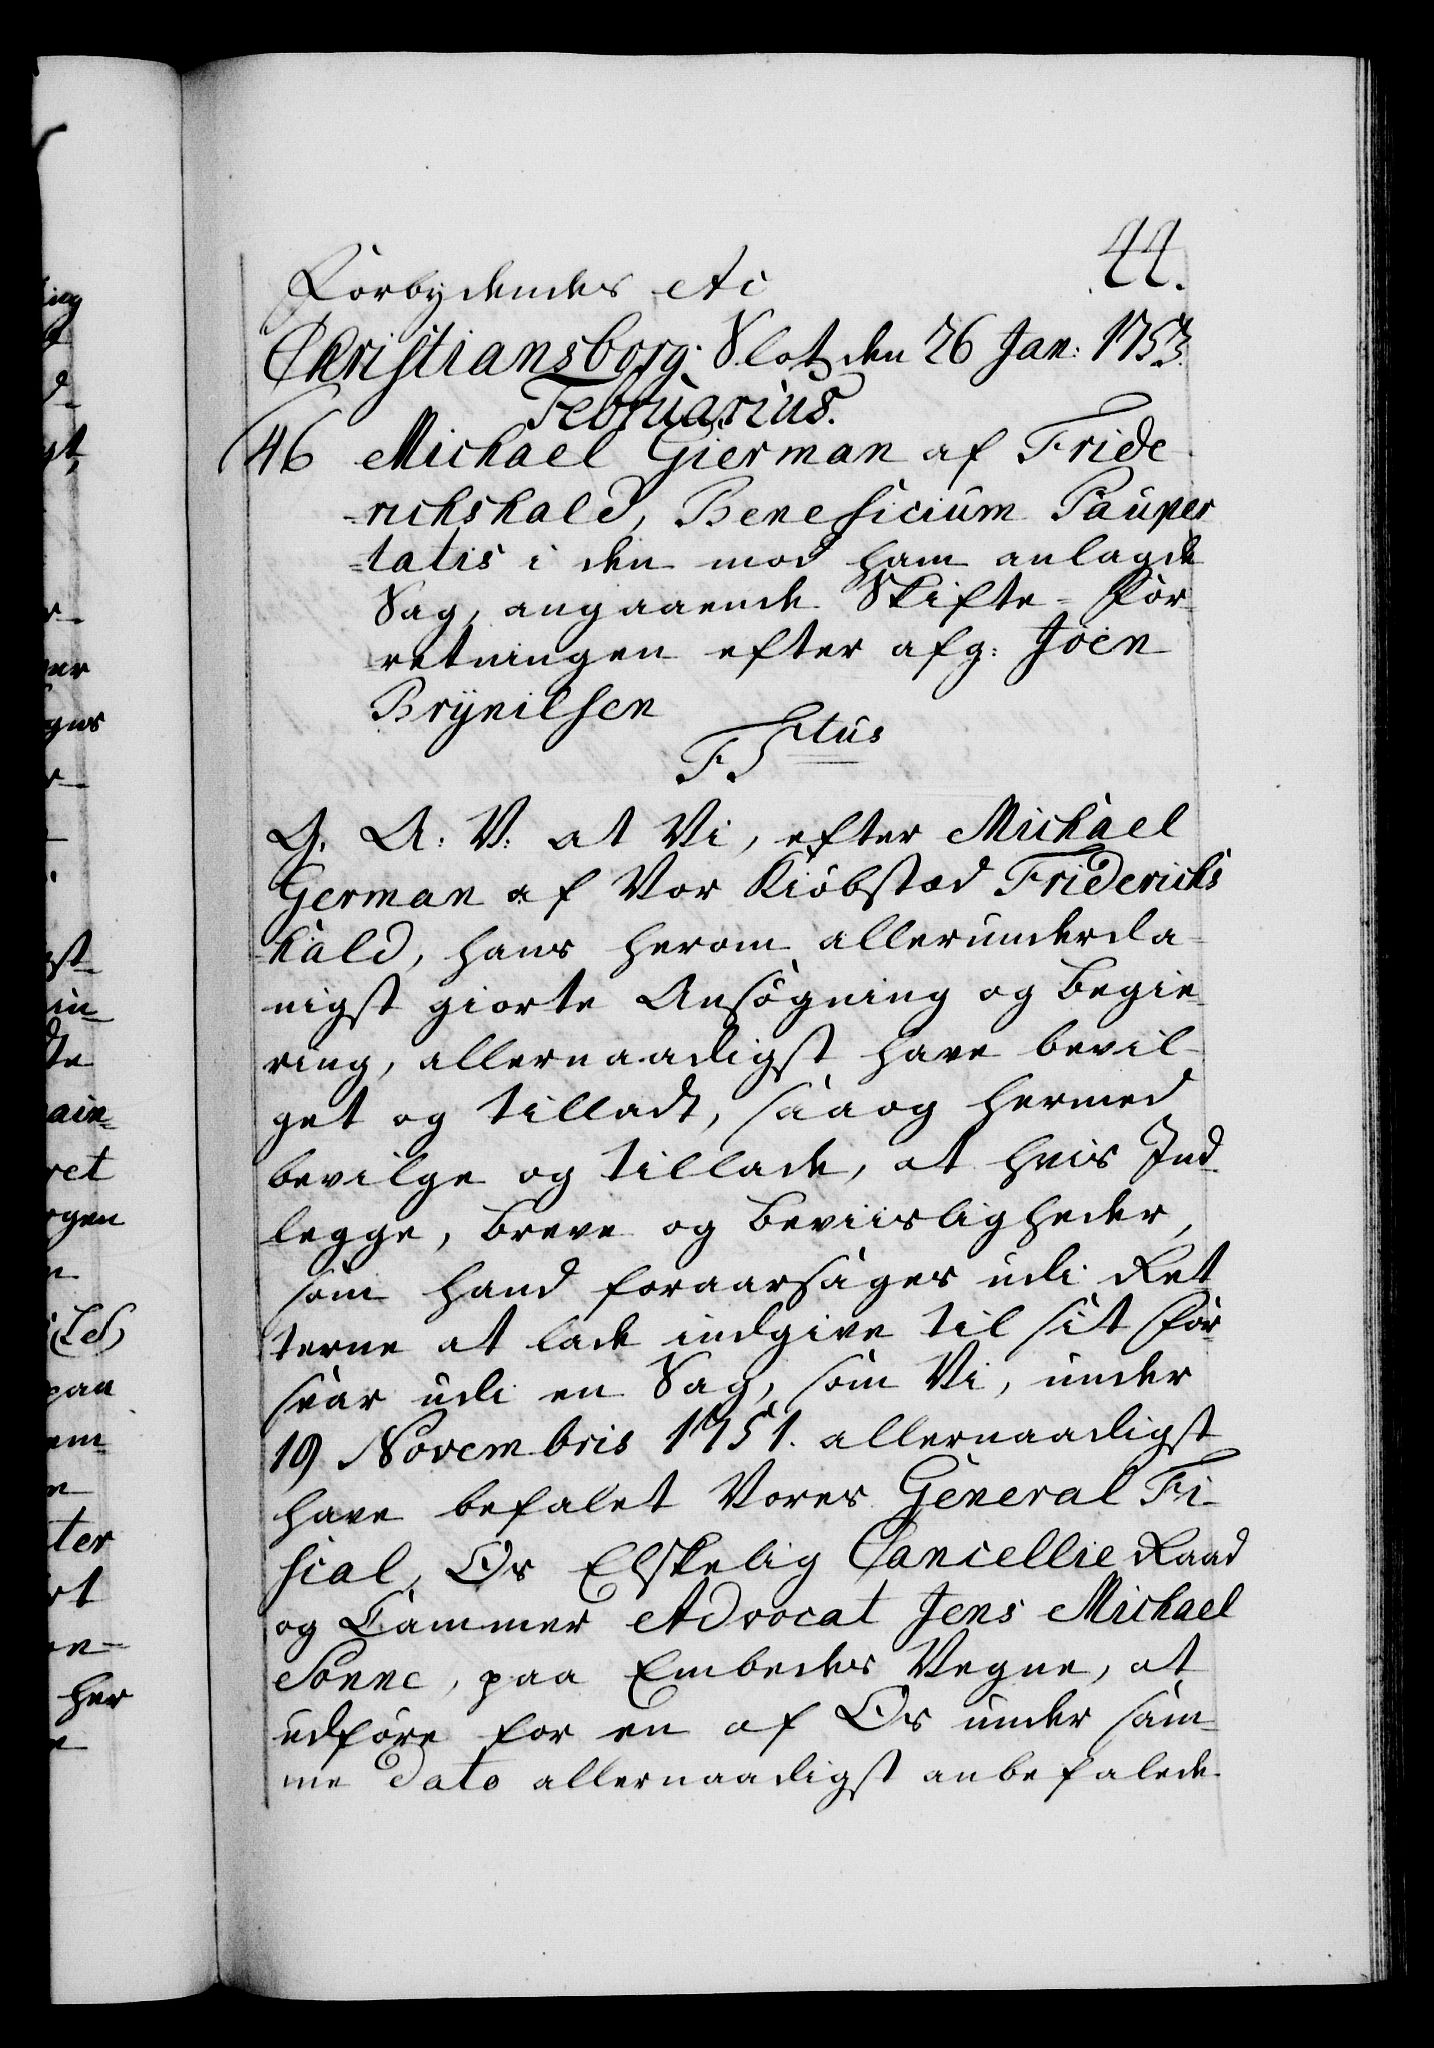 44.
Forbydendes etc
Christiansborg Slot den 26 Jan: 1753.
Februarius.
46 Michael Gierman af Fride
richshald, Beneficium Pauper
=tatis i den mod ham anlagde
Sag, angaaende Skifte-For
retningen efter afg: Joen
Brynilsen
F. 5tus
G. A: V: at Vi, efter Michael
German af Vor Kiøbstæd Friderichs
hald, hans herom allerunderda-
nigst giorte Ansøgning og Begie-
ring, allernaadigst have bevil-
get og tilladt, saa og hermed
bevilge og tillade, at hvis Ind
legge, Breve og Beviisligheder,
som hand foraarsages udi Ret
terne at lade indgive til sit For
svar udi en Sag, som Vi, under
19 Novembris 1751. allernaadigst
have befalet Vores General Fi-
scal, Os Elskelig Cancellie Raad
og Cammer Advocat Jens Michael
Sonne, paa Embedes Vegne, at
udføre for en af Os under sam-
me Dato allernaadigst anbefalede